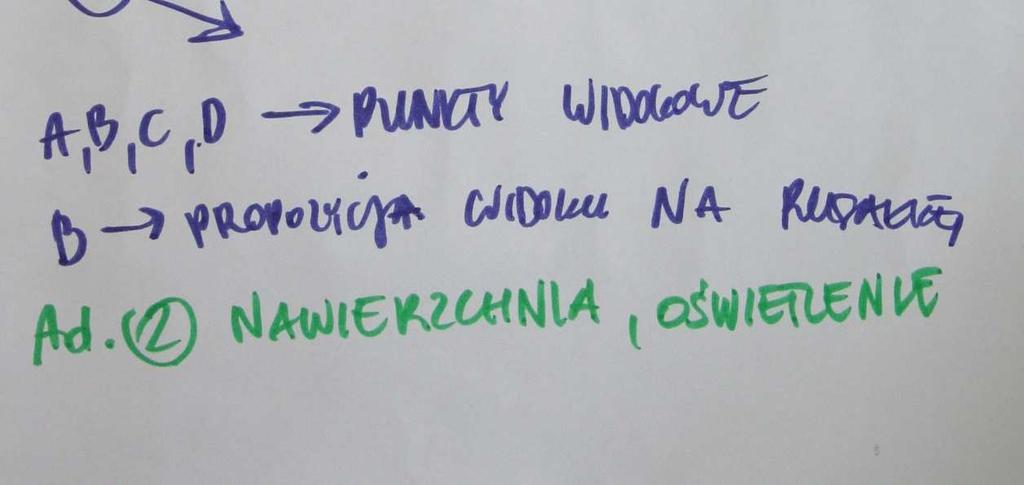 A, B, C, D → PUNKTY WIDOKOWE
B → PROPOZYCJA WIDOKU NA
Ad. (2) NAWIERZCHNIA, OŚWIETLENIE